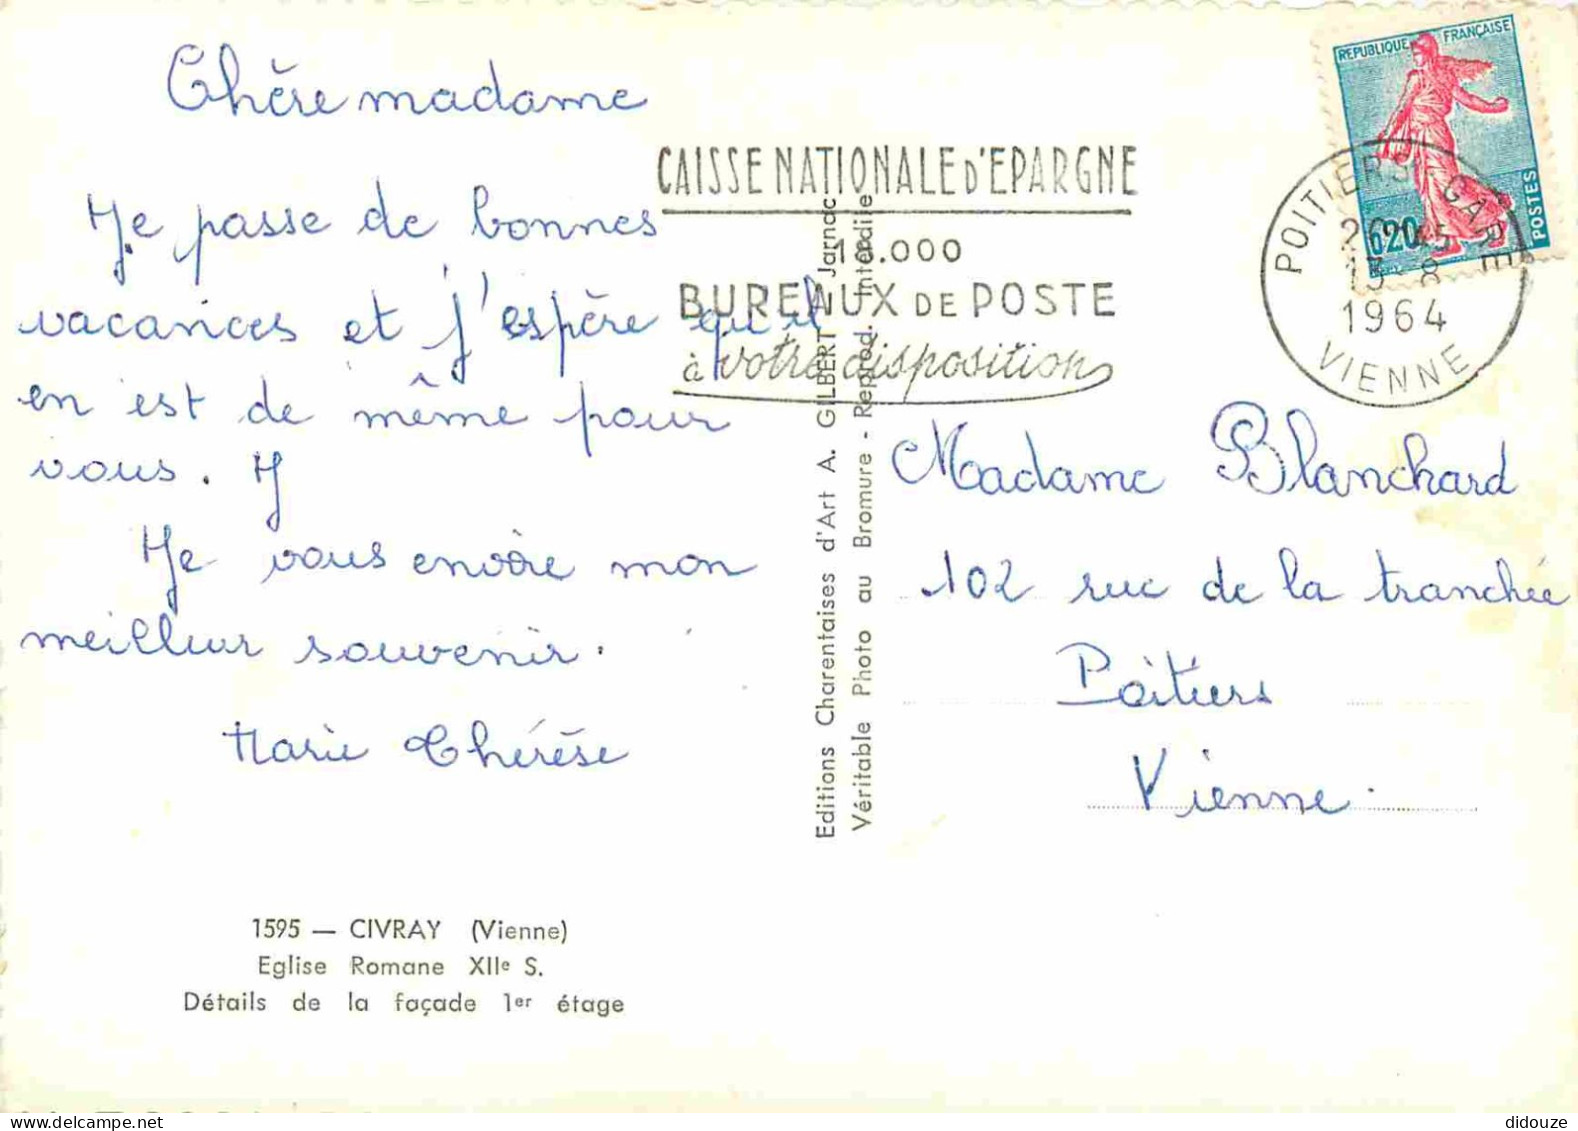 Chère madame
Je passe de bonnes
vacances et j'espère qu'il
en est de même pour
vous. J
Je vous envoie mon
meilleur souvenir.
Marie Thérèse
1595 — CIVRAY (Vienne)
Eglise Romane XIIe S.
Détails de la façade 1er étage
Editions Charentaises d'Art A. GILBERT Jarnac
Véritable Photo au Bromure - Reprod. Interdite
CAISSE NATIONALE D'EPARGNE
18.000
BUREAUX DE POSTE
à votre disposition
REPUBLIQUE FRANÇAISE
POSTES
0,20
POITIERS GARE
13 - 8
1964
VIENNE
Madame Blanchard
102 rue de la tranchée
Poitiers
Vienne.
didouze